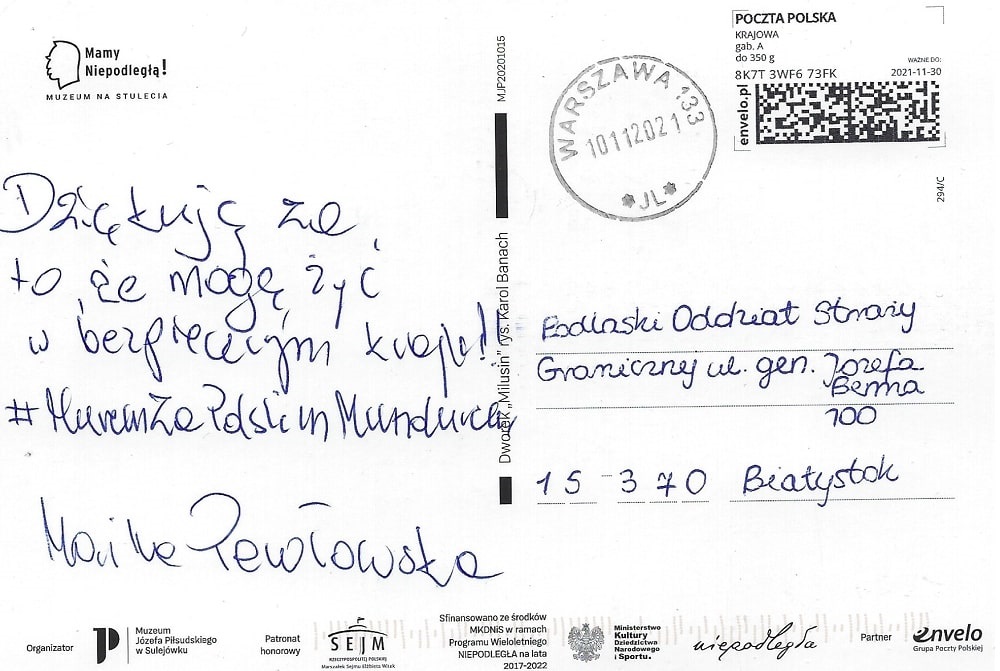 Mamy
Niepodległą!
MUZEUM NA STULECIA
Dziękuję za
to, że mogę żyć
w bezpiecznym kraju!!
#MuremZaPolskimMundurem
Pawłowska
MJP20201015
Dworek „Milusin” rys. Karol Banach
WARSZAWA 133
10112021
*JL*
POCZTA POLSKA
KRAJOWA
gab. A
do 350 g
WAŻNE DO:
8K7T 3WF6 73FK 2021-11-30
envelo.pl
294/C
Podlaski Oddział Straży
Granicznej ul. gen. Józefa
Bema
100
15-370 Białystok
Organizator
Muzeum
Józefa Piłsudskiego
w Sulejówku
Patronat
honorowy
SEJM
RZECZYPOSPOLITEJ POLSKIEJ
Marszałek Sejmu Elżbieta Witek
Sfinansowano ze środków
MKDNiS w ramach
Programu Wieloletniego
NIEPODLEGŁA na lata
2017-2022
Ministerstwo
Kultury
Dziedzictwa
Narodowego
i Sportu.
niepodległa
Partner
envelo
Grupa Poczty Polskiej